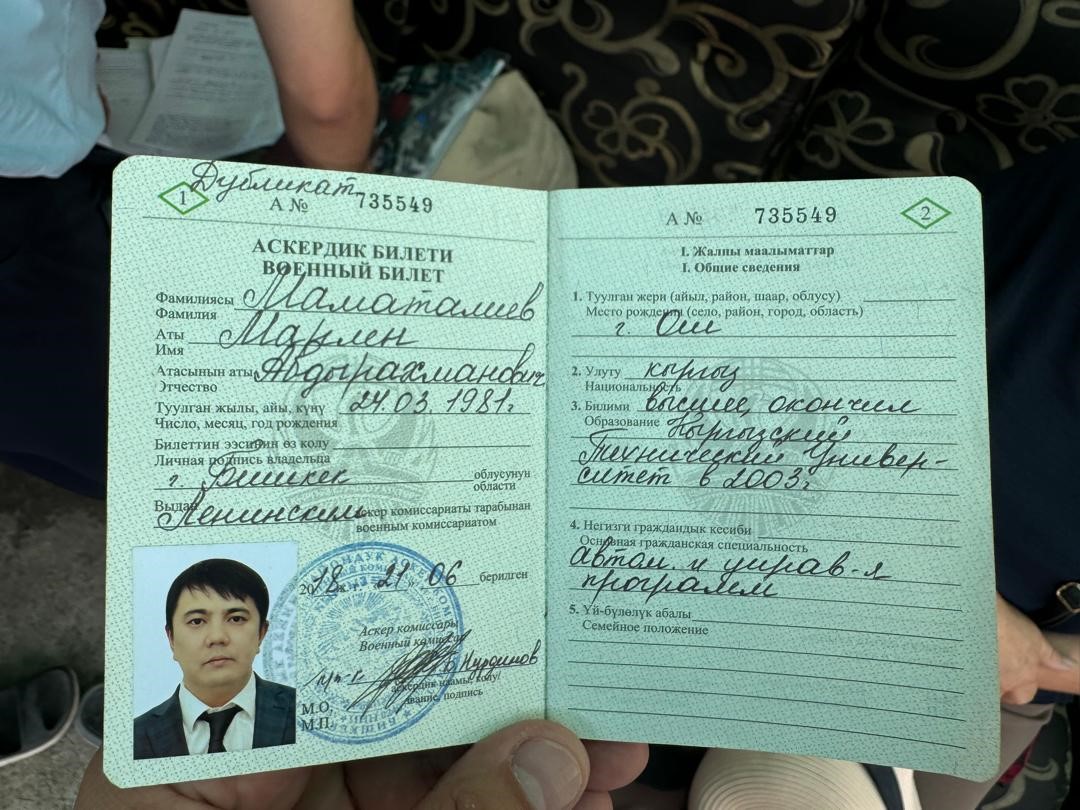 1
Дубликат
А № 735549
АСКЕРДИК БИЛЕТИ
ВОЕННЫЙ БИЛЕТ
Фамилиясы
Фамилия Маматалиев
Аты
Имя Марлен
Атасынын аты Абдырахманович
Отчество
Туулган жылы, айы, күнү 24.03.1981г
Число, месяц, год рождения
Билеттин ээсинин өз колу
Личная подпись владельца
г. Бишкек облусунун
области
Выдан Ленинским аскер комиссариаты тарабынан
военным комиссариатом
2018 ж. г. 21 06 берилген
Аскер комиссары
Военный комиссар
пп-к Нурдинов
звание, подпись
М.О.
М.П.
А № 735549
2
I. Жалпы маалыматтар
I. Общие сведения
1. Туулган жери (айыл, район, шаар, облусу)
Место рождения (село, район, город, область)
г. Ош
2. Улуту кыргыз
Национальность
3. Билими высшее, окончил
Образование Кыргызский
Технический Универ-
ситет в 2003г
4. Негизги граждандык кесиби
Основная гражданская специальность
автом. и управ-я
программ
5. Үй-бүлөлүк абалы
Семейное положение